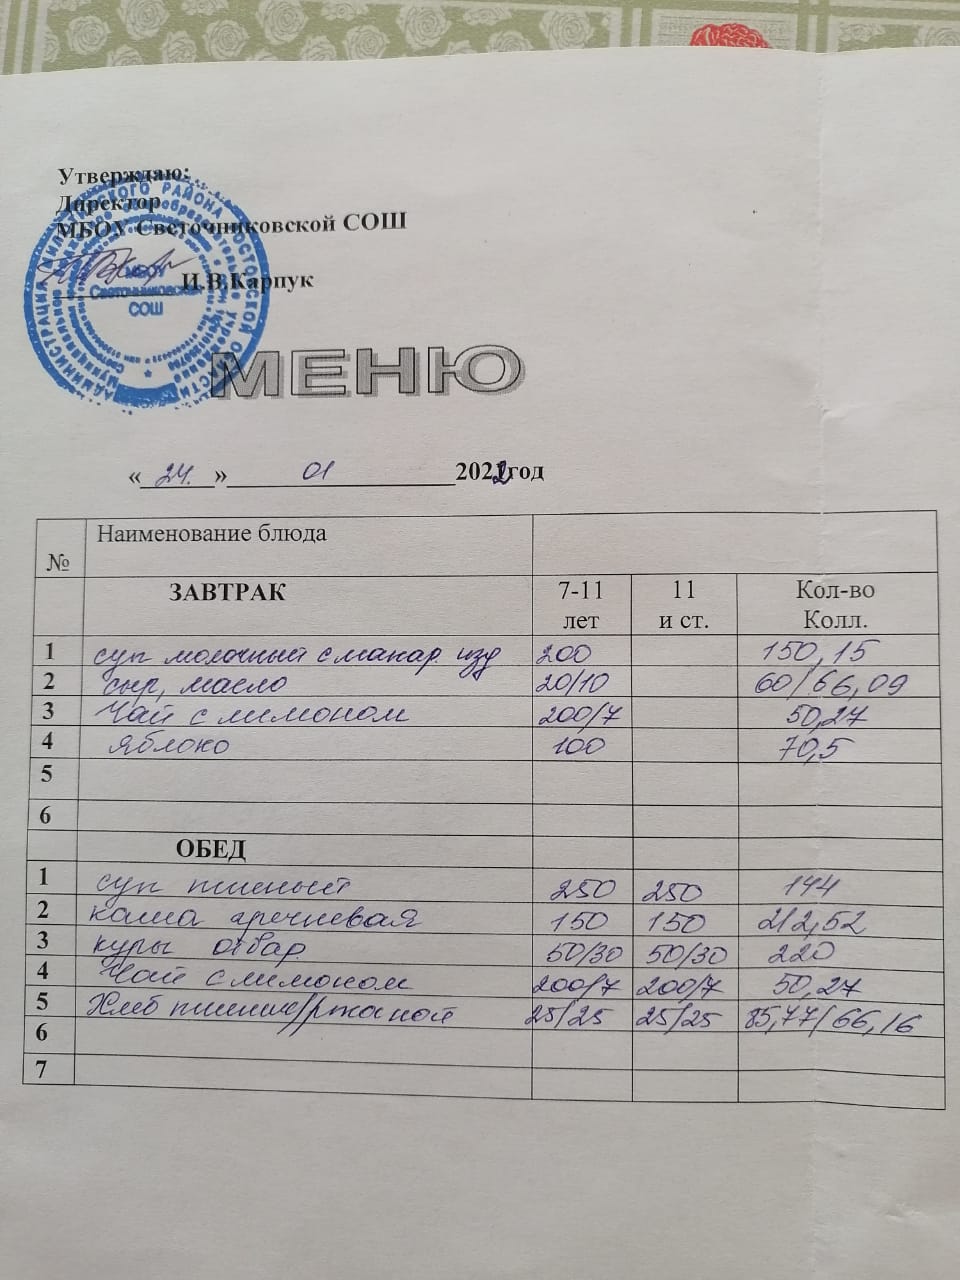 Утверждаю:
Директор
МБОУ Светочниковской СОШ
И.В.Карпук
МБОУ
Светочниковская
СОШ
МЕНЮ
« 24. » 01 2022 год
№ Наименование блюда
ЗАВТРАК 7-11 лет 11 и ст. Кол-во Колл.
1 суп молочный с макар. изд 200 150,15
2 сыр, масло 20/10 60/66,09
3 Чай с лимоном 200/7 50,27
4 Яблоко 100 70,5
5
6
ОБЕД
1 суп пшеный 250 250 144
2 каша гречневая 150 150 212,52
3 куры отвар. 50/30 50/30 220
4 Чай с лимоном 200/7 200/7 50,27
5 Хлеб пшенич/ржаной 25/25 25/25 85,77/66,16
6
7